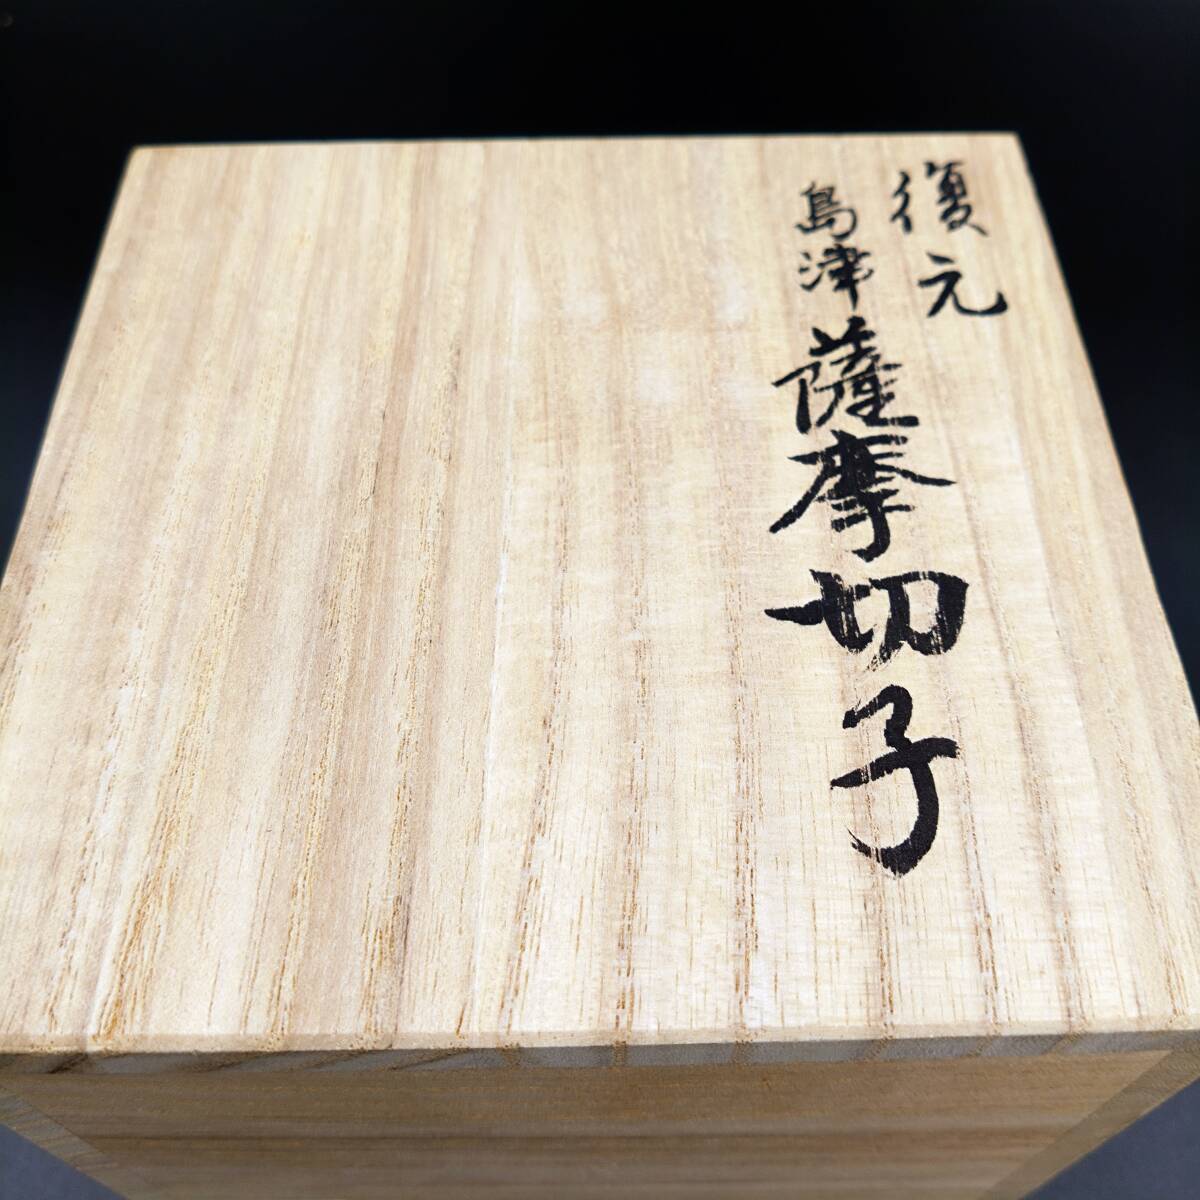 復元
島津薩摩切子